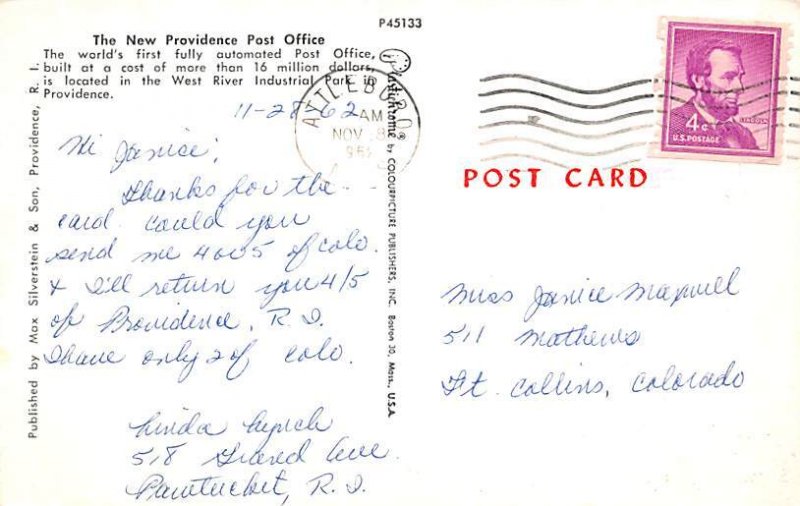 P45133
The New Providence Post Office
The world's first fully automated Post Office,
built at a cost of more than 16 million dollars,
is located in the West River Industrial Park in
Providence.
11-28-62
Hi Janice,
Thanks for the
card. Could you
send me 4 or 5 of colo.
& I'll return you 4/5
of Providence, R.I.
I have only 2 of colo.
Linda Lynch
518 Grand Ave.
Pawtucket, R.I.
Published by Max Silverstein & Son, Providence, R. I.
Plastichrome ® by COLOURPICTURE PUBLISHERS, INC. Boston 30, Mass., U.S.A.
ATTLEBORO
AM
NOV
LINCOLN
4¢
U.S. POSTAGE
POST CARD
Miss Janice Maxwell
511 Mathews
Ft. Collins, Colorado